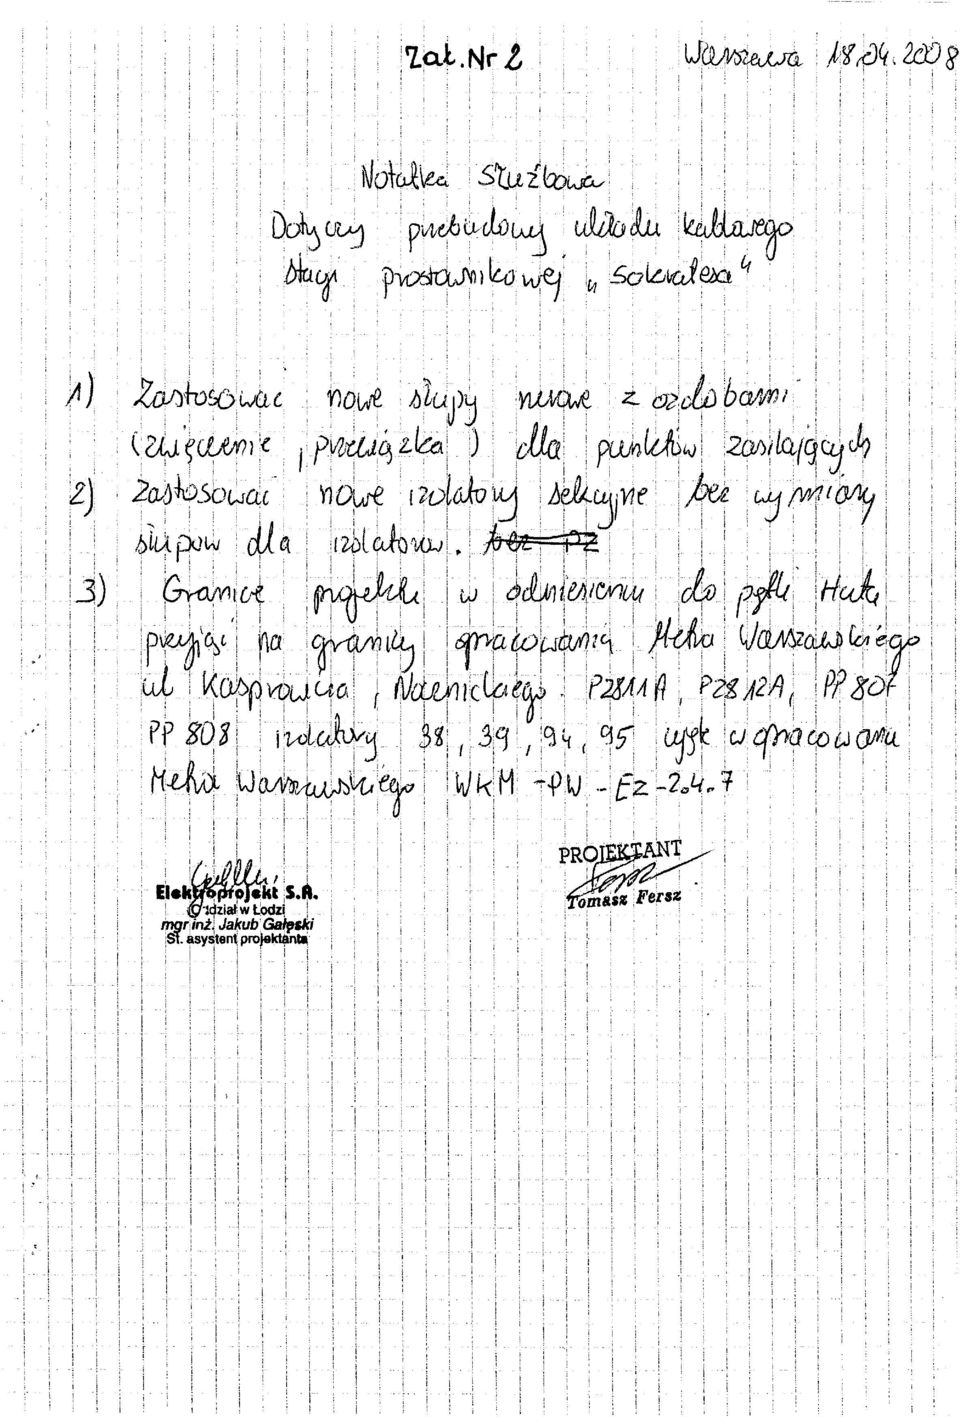 Zał. Nr 2 Warszawa 18.04.2008
Notatka Służbowa
Dotyczy przebudowy układu kablowego
stacji prostownikowej „Sokratesa"
1) Zastosować nowe słupy rurowe z ozdobami
(zwięczenie, przewiązka) dla punktów zasilających
2) Zastosować nowe izolatory sekcyjne bez wymiany
słupów dla izolatorów. bez
3) Granice projektu w odniesieniu do pętli Huta
przyjąć na granicy opracowania Metra Warszawskiego
ul Kasprowicza, Nocznickiego. PZ811A, PZ812A, PP 807
PP 808 izolatory 38, 39, 94, 95 wg w opracowaniu
Metra Warszawskiego WKM - PW - EZ - 2.4.7
PROJEKTANT
Tomasz Fersz
Elektroprojekt S.A.
Oddział w Łodzi
mgr inż. Jakub Gałęski
St. asystent projektanta